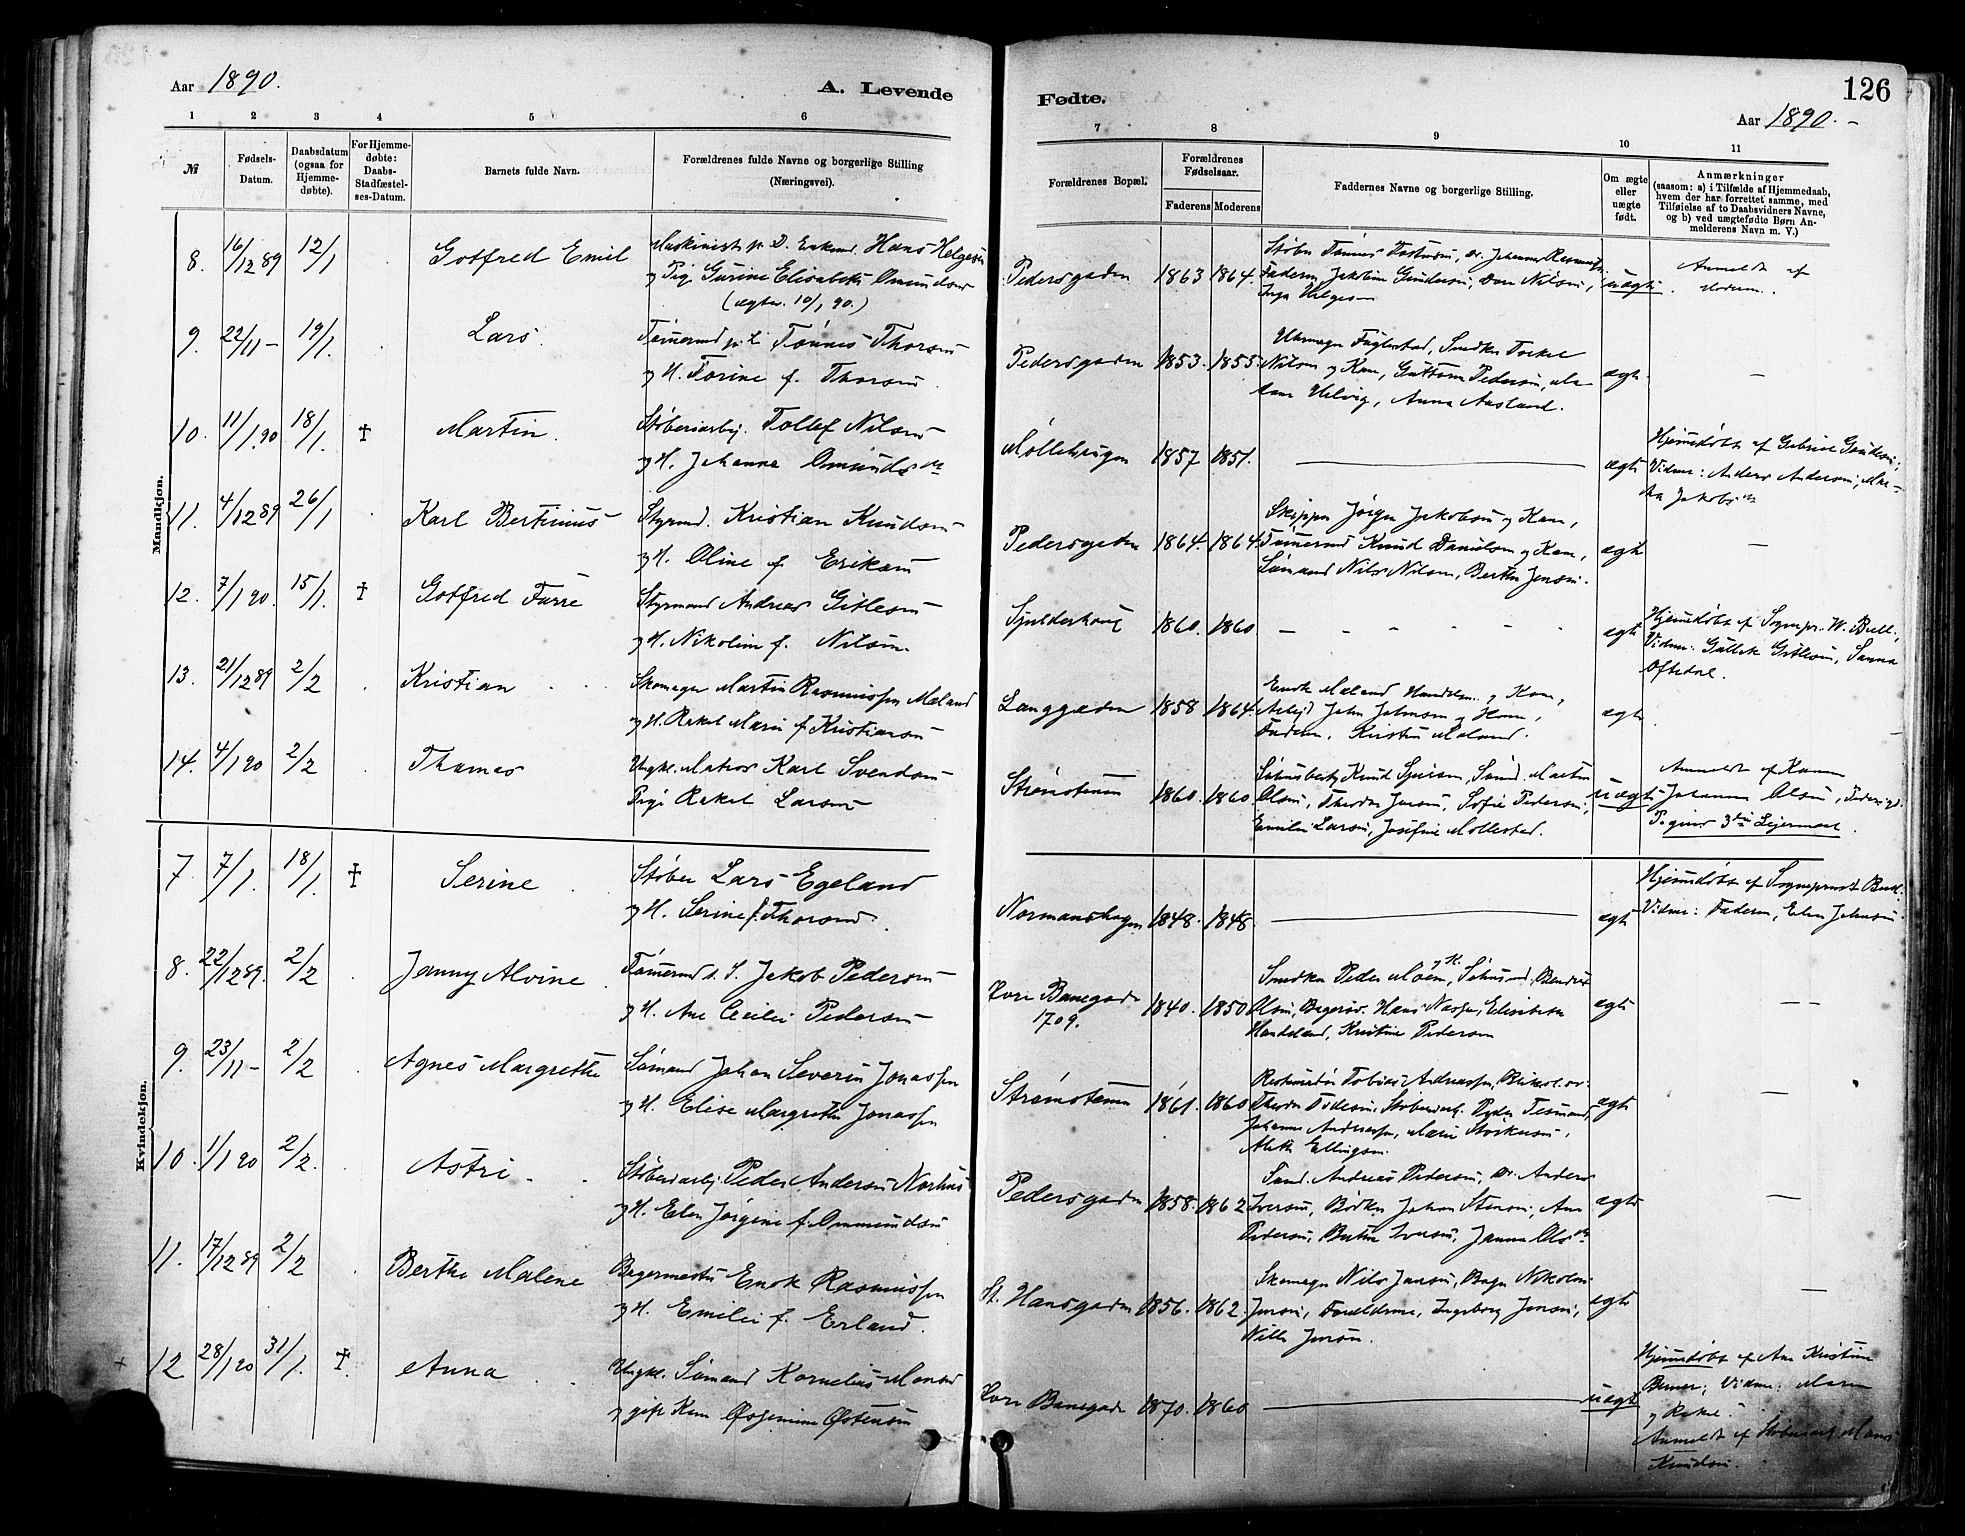 Aar 1890.
A. Levende
Fødte.
126
Aar 1890.
1 2 3 4 5 6 7 8 9 10 11
№
Fødsels-
Datum.
Daabsdatum
(ogsaa for
Hjemme-
døbte).
For Hjemme-
døbte:
Daabs-
Stadfæstel-
ses-Datum.
Barnets fulde Navn.
Forældrenes fulde Navne og borgerlige Stilling
(Næringsvei).
Forældrenes Bopæl.
Forældrenes
Fødselsaar.
Faderens Moderens
Faddernes Navne og borgerlige Stilling.
Om ægte
eller
uægte
født.
Anmærkninger
(saasom: a) i Tilfælde af Hjemmedaab,
hvem der har forrettet samme, med
Tilføielse af to Daabsvidners Navne,
og b) ved uægtefødte Børn An-
melderens Navn m. V.)
Mandkjøn.
8. 16/12 89 12/1 Gotfred Emil
Hans Helgesen
og Pige Gurine Elisabeth Omundsen
(ægtev. 10/1 90.)
Pedersgaden 1863 1864. uægte
Anmeldt af
Moderen.
9. 22/11 – 19/1. Lars.
Tønnes Thorsen
og H. Torine f. Thorsen.
Pedersgaden 1853. 1855.
Nilsen og Kone, Guttorm Pedersen,
Helvig, Anna Aasland. ægte –
10. 11/1 90 18/1. † Martin.
Støberiarbj. Tollef Nilsen
og H. Johanna Omunds dr
Møllehaugen 1857 1851. ægte
Hjemmedøbt af Gabriel Gundersen;
Vidner: Anders Andersen,
11. 4/12 89 26/1 Karl Bertinius
Styrmd. Kristian Knudsen
og H. Oline f. Eriksen
Pedersgaden 1864. 1864
Skipper Jørgen Jakobsen og Kone,
Tømmermd Knud Danielsen og Kone,
Sømand Nils Nilsen, Berthe Jensen. ægte –
12. 7/1 90. 15/1. † Gotfred Farre
Styrmand Andreas Gitlesen
og H. Nikoline f. Nilsen.
Sjulderhaug 1860. 1860 ægte
Hjemmedøbt af Sognepr. W. Bull.
Vidner: Gullek Gitlesen, Sanna
Oftedal.
13. 21/12 89 2/2 Kristian
Skomager Martin Rasmussen Mæland
og H. Rakel Marie f. Kristiansen
Langgaden 1858 1864.
Enok Mæland Handelsm. og Kone,
Arbejd John Johnsen og Kone,
Faderen, Kirsten Mæland. ægte.
14. 4/1 90 2/2 Thomas
Ungk. Matros Karl Svendsen
Pige Rakel Larsen
Strømstenen 1860. 1860
Olsen, Theodor Jensen, Sofie Pedersen,
Emilie Larsen, Josefine Møllestad. uægte
Anmeldt af Konen
Johanna Olsen,
Pigens 3die Leiermaal.
Kvindekjøn.
7 7/1. 18/1. † Serine
Støber Lars Egeland
og H. Serine f. Thorsen.
Normanshagen 1848. 1848. ægte
Hjemmedøbt af Sogneprest Bull.
Vidner: Faderen, Elen Johnsen.
8. 22/12 89. 2/2 Janny Alvine
Jakob Pedersen
og H. Ane Cecilie Pedersen
Øvre Banegade
1709. 1840. 1850
Snedker Peder Moen og H.,
Olsen, Hans Næsse, Elisabeth
Kristine Pedersen ægte – –
9. 23/11 – 2/2 Agnes Margrethe
Sømand Johan Severin Jonassen
og H. Elise Margrethe Jonassen
Strømstenen 1861. 1860
Tobias Andreassen,
Johanne Andreassen, Marie
Ellingsen. ægte –
10. 1/1 90 2/2. Astri
Støberiarbj Peder Andersen Norhus
og H. Elen Jørgine f. Ommundsen
Pedersgaden 1858. 1862
Sømd. Andreas Pedersen, Anders
Iversen, Bødker Johan Stensen, Ane
Pedersen, Iversen, Janna Ols dr ægte –
11. 17/12 89 2/2 Berthe Malene
Bagermester Enok Rasmussen
og H. Emelie f. Erland.
St. Hansgaden 1856. 1862.
Skomager Nils Jensen, Bager Nikolai
Jensen, Forældrene, Ingeborg Jensen,
Nille Jensen. ægte –
12 28/1 90 31/1. †. Anna
Ungk. Sømand Kornelius Monsen
og gift Kone Østensen
Øvre Banegade 1870. 1860 uægte
Hjemmedøbt af Ane Kristine
Vidner: Maren
og Rakel.
Anmeldt af Støberiarb. Mons
Knudsen.